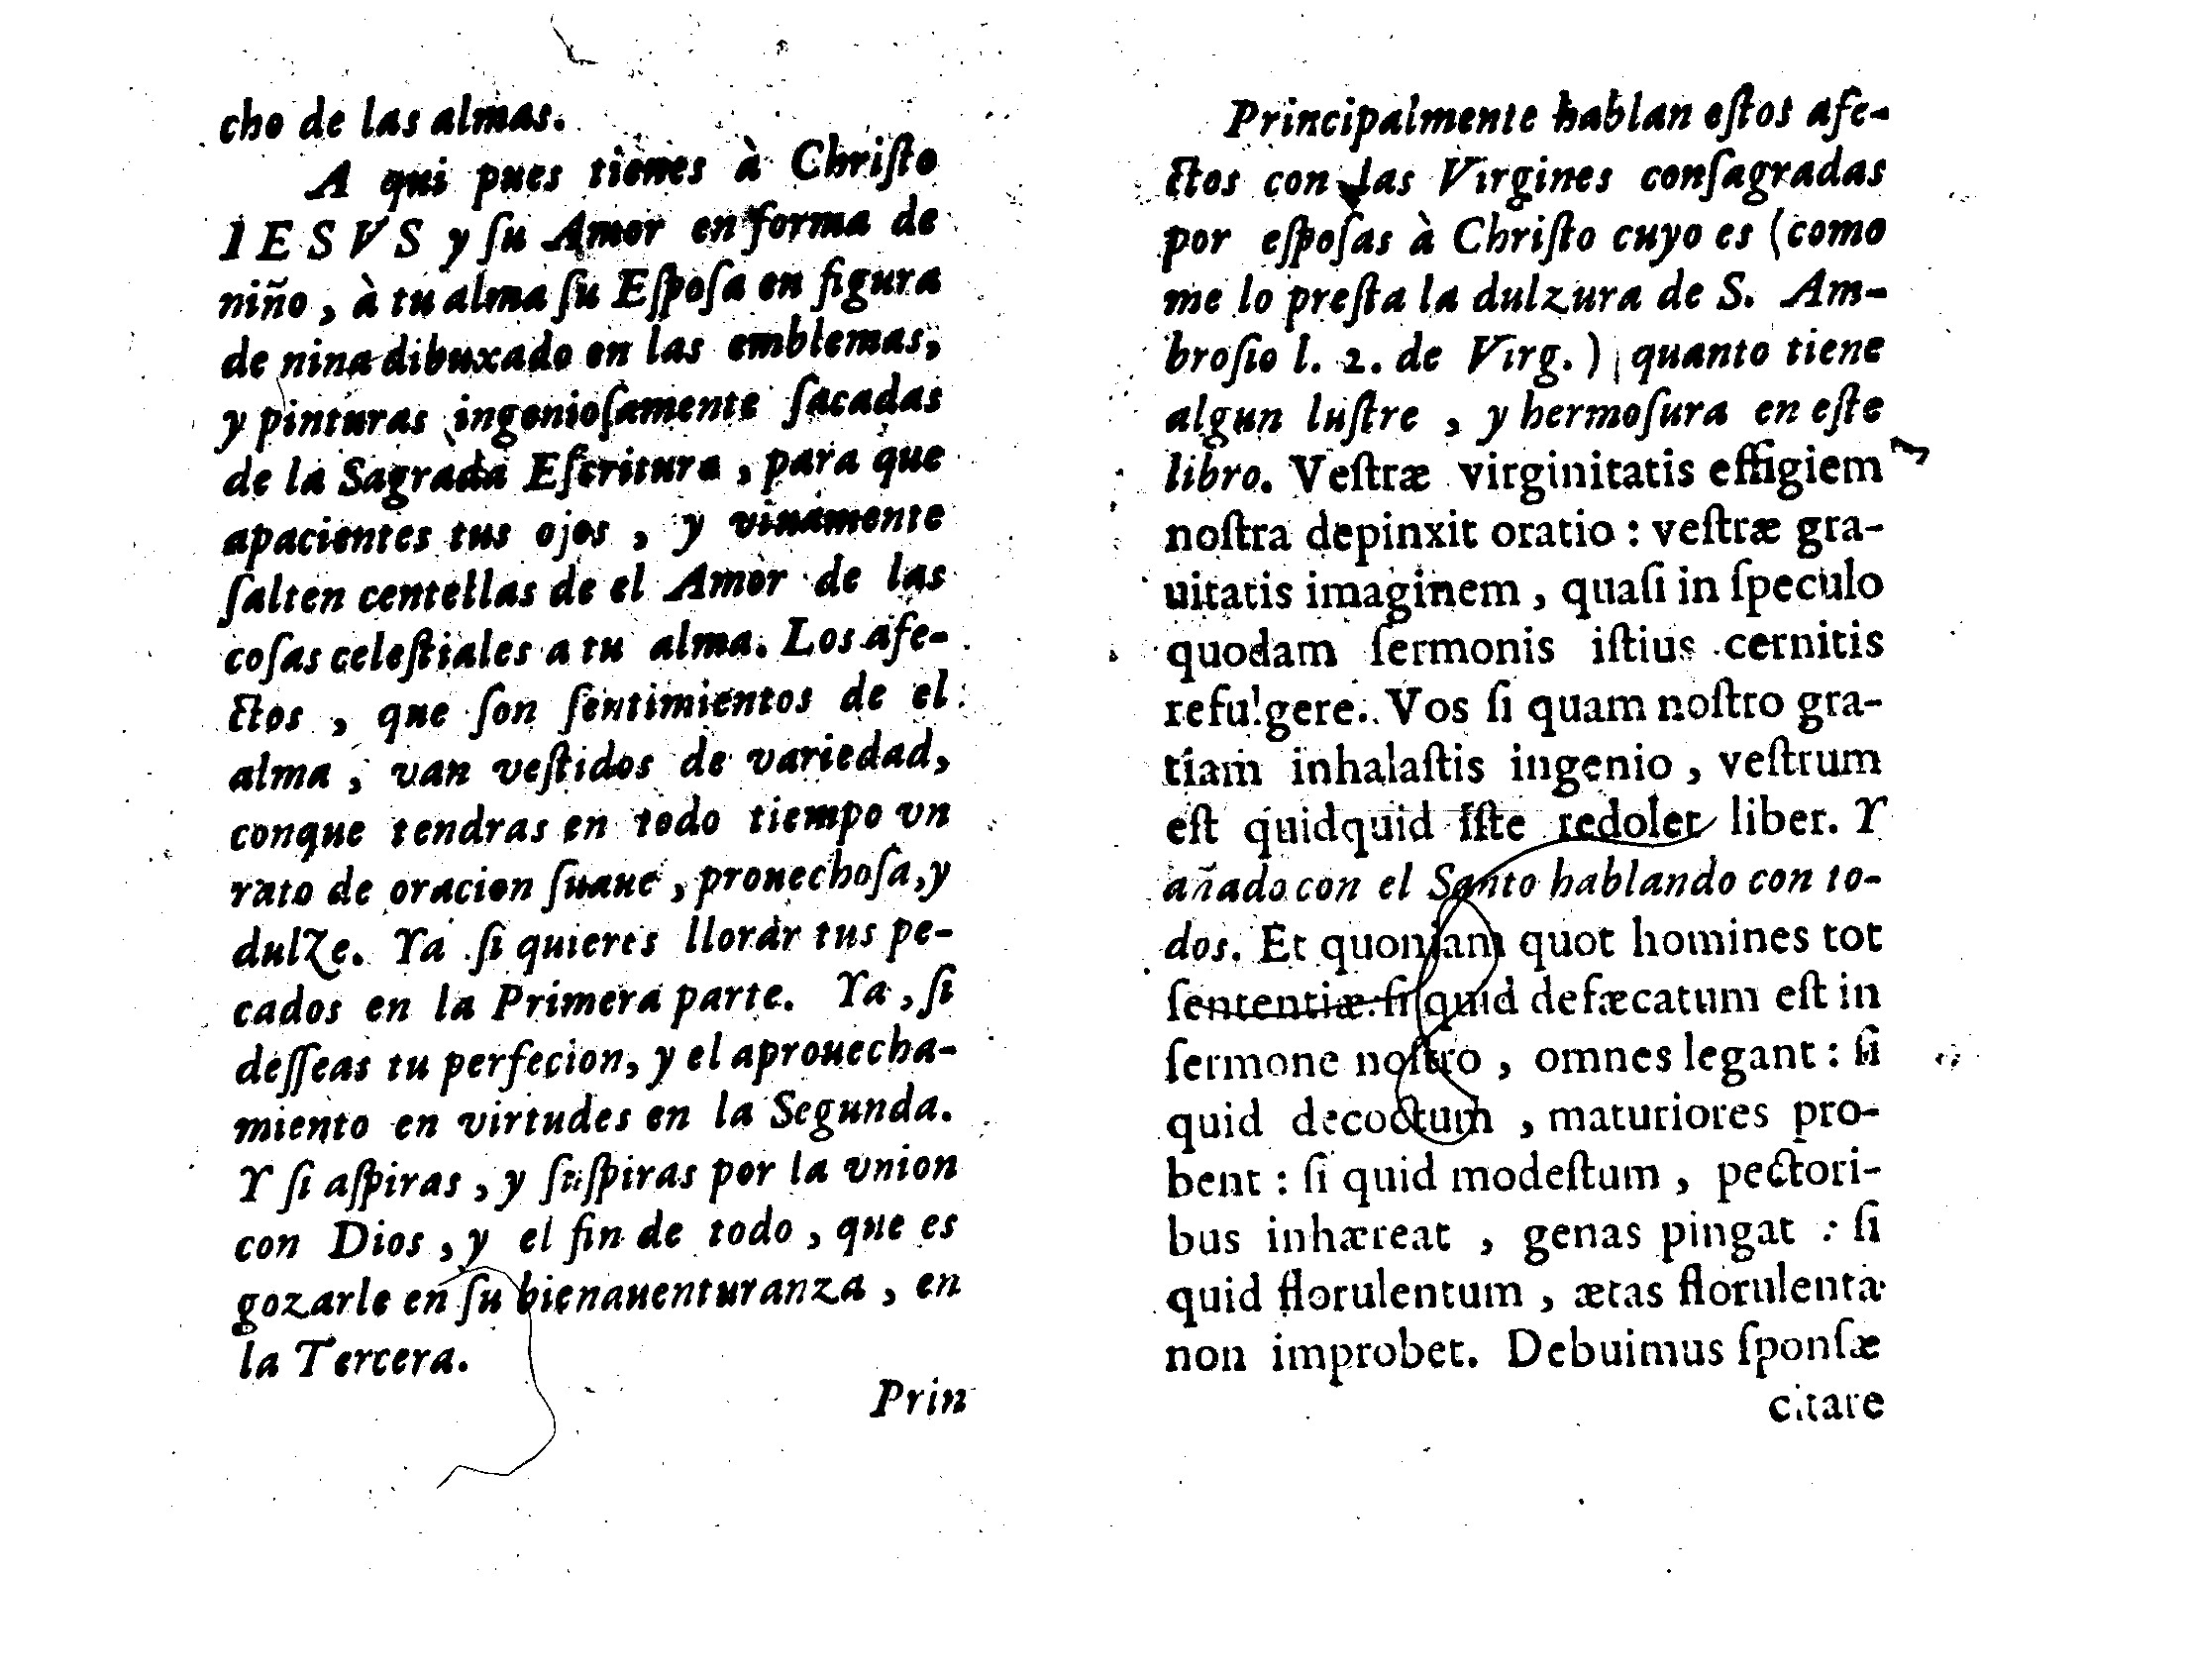 cho de las almas.
A qui pues tienes à Chriſto
IESVS y ſu Amor en forma de
niño, à tu alma ſu Eſpoſa en figura
de nina dibuxado en las emblemas,
y pinturas ingenioſamente ſacadas
de la Sagrada Eſcritura, para que
apacientes tus ojos, y viuamente
ſalten centellas de el Amor de las
coſas celeſtiales a tu alma. Los afe-
ctos, que ſon ſentimientos de el
alma, van veſtidos de variedad,
conque tendras en todo tiempo vn
rato de oracion ſuaue, prouechoſa, y
dulZe. Ya ſi quieres llorar tus pe-
cados en la Primera parte. Ya, ſi
deſſeas tu perfecion, y el aprouecha-
miento en virtudes en la Segunda.
Y ſi aſpiras, y ſuſpiras por la vnion
con Dios, y el fin de todo, que es
gozarle en ſu bienauenturanza, en
la Tercera.
Prin
Principalmente hablan eſtos afe-
ctos con las Virgines conſagradas
por eſpoſas à Chriſto cuyo es (como
me lo preſta la dulzura de S. Am-
broſio l. 2. de Virg.) quanto tiene
algun luſtre, y hermoſura en eſte
libro. Veſtræ virginitatis effigiem
noſtra depinxit oratio: veſtræ gra-
uitatis imaginem, quaſi in ſpeculo
quodam ſermonis iſtius cernitis
refulgere. Vos ſi quam noſtro gra-
tiam inhalaſtis ingenio, veſtrum
eſt quidquid iſte redolet liber. Y
añado con el Santo hablando con to-
dos. Et quoniam quot homines tot
ſententiæ. ſi quid defæcatum eſt in
ſermone noſtro, omnes legant: ſi
quid decoctum, maturiores pro-
bent: ſi quid modeſtum, pectori-
bus inhæreat, genas pingat: ſi
quid florulentum, ætas florulenta
non improbet. Debuimus ſponſæ
citare